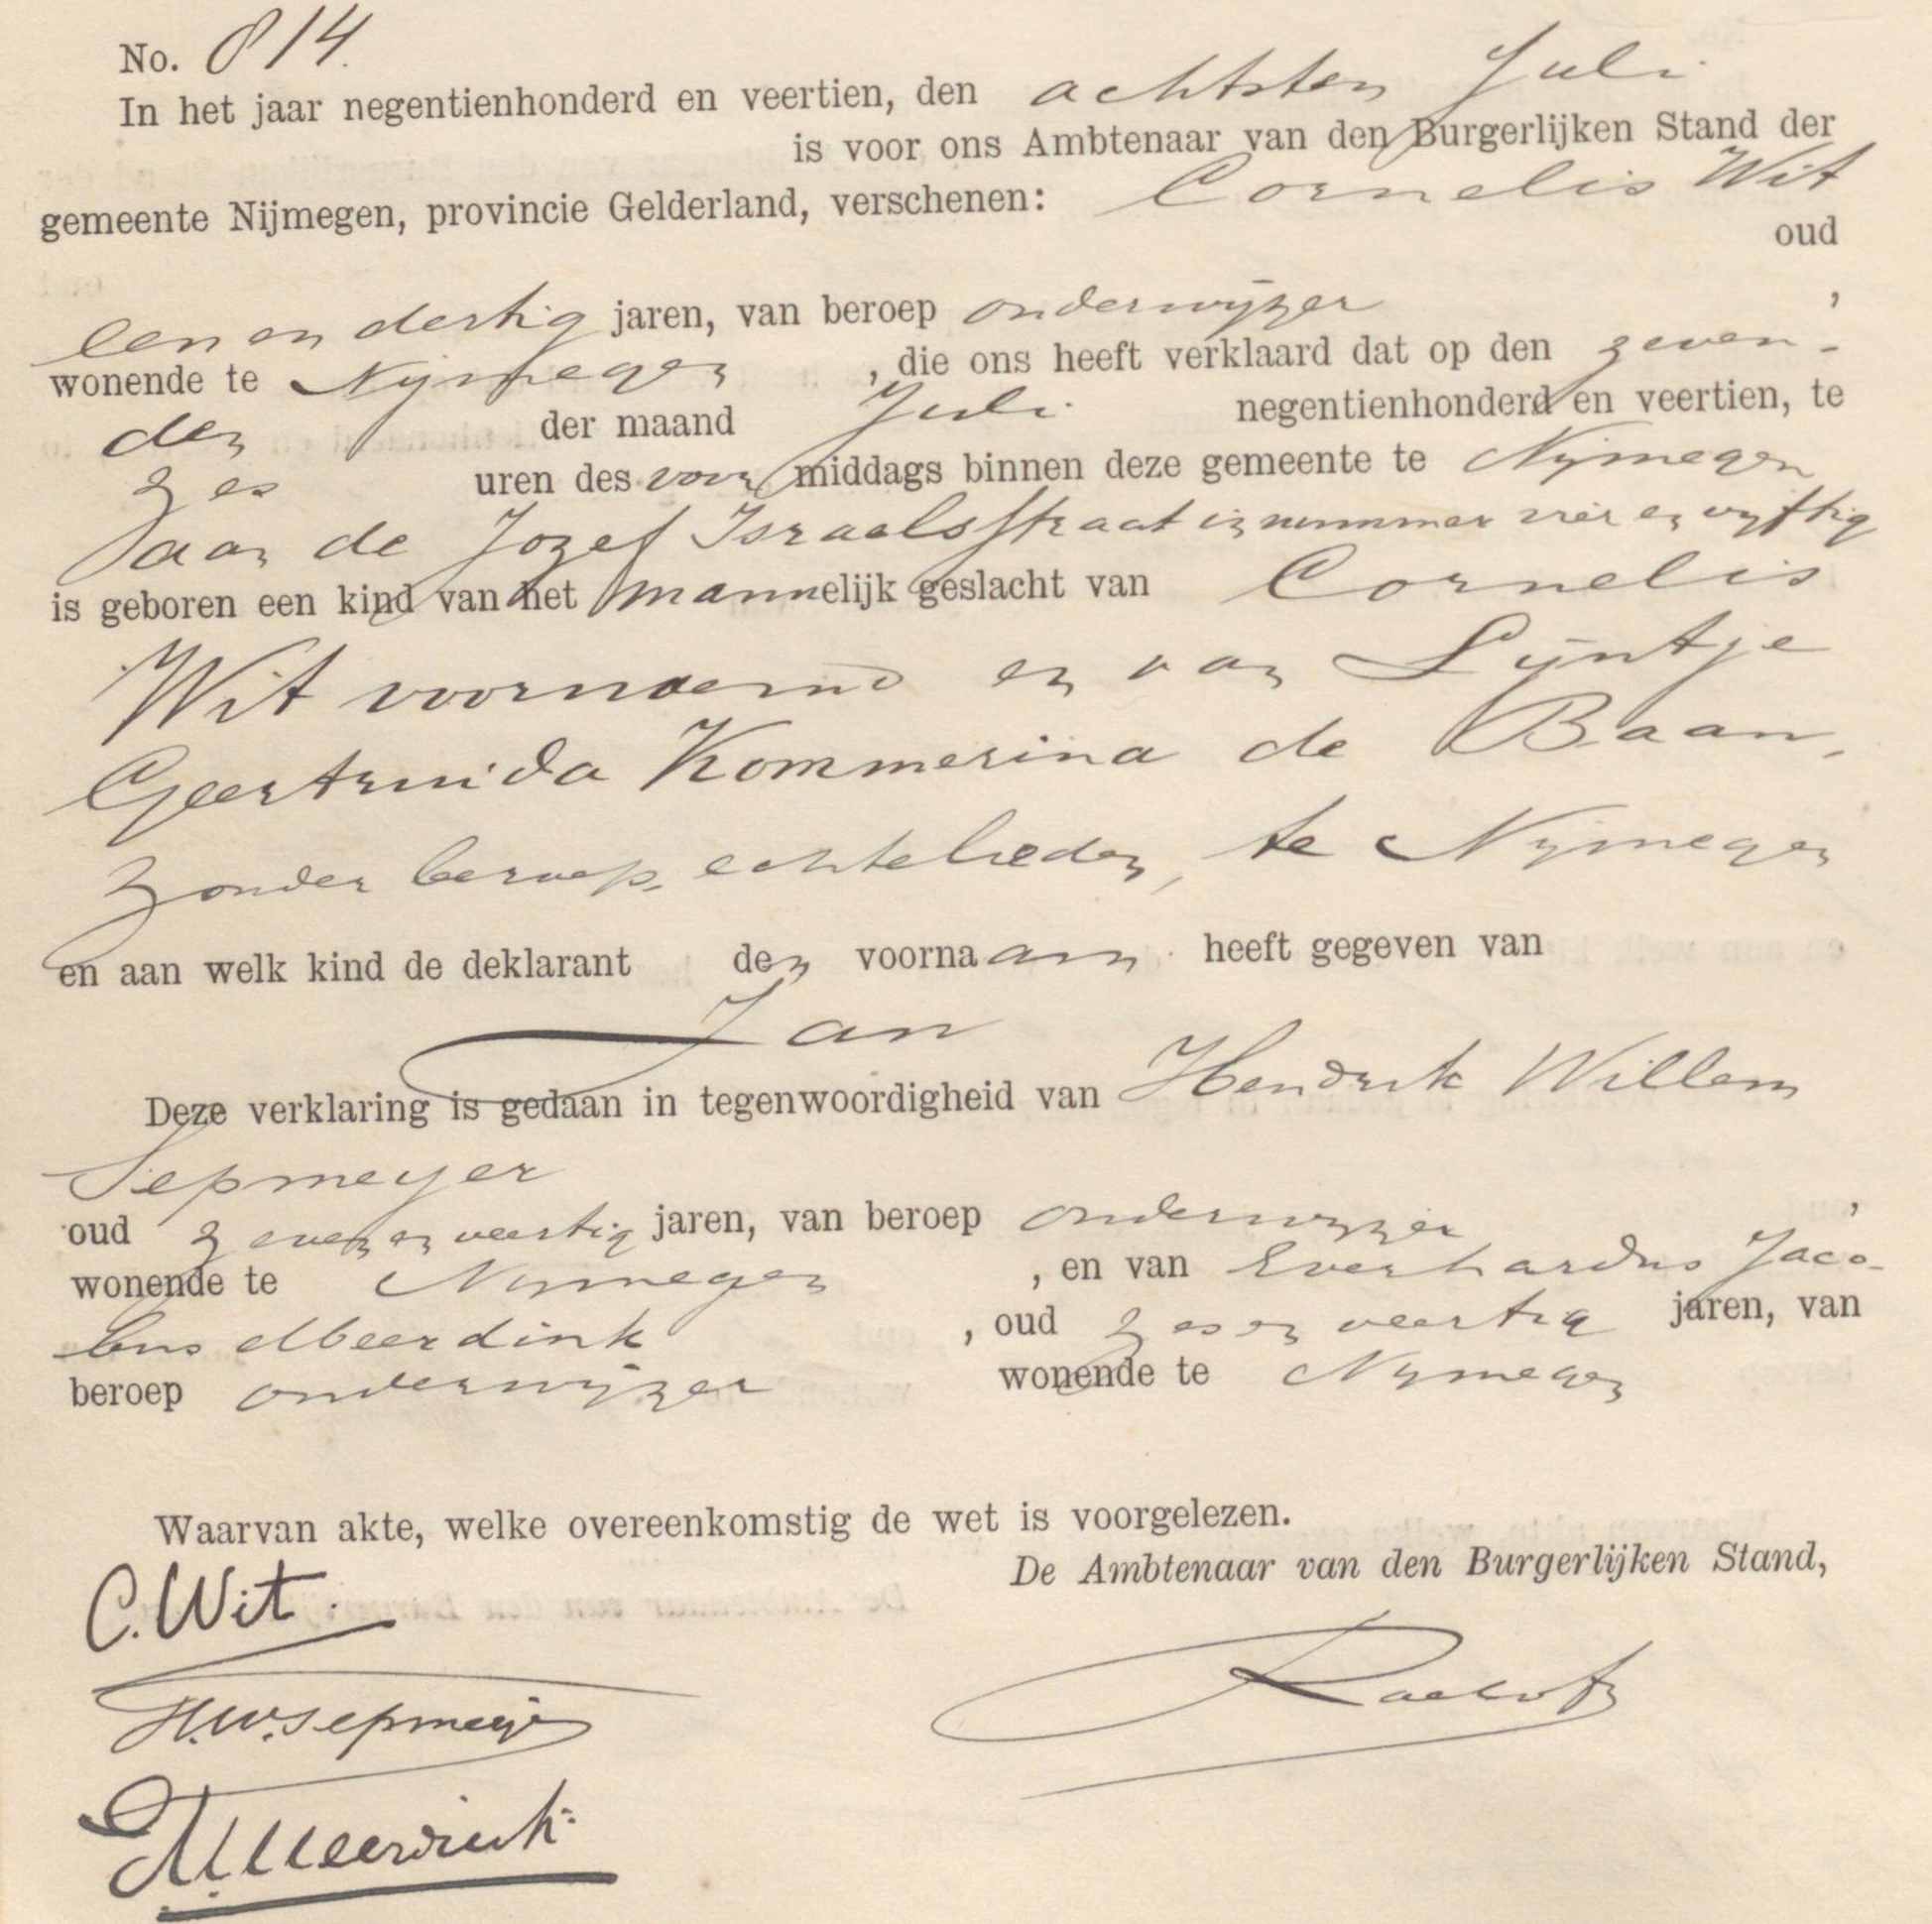 No. 814.
In het jaar negentienhonderd en veertien, den achtsten Juli
is voor ons Ambtenaar van den Burgerlijken Stand der
gemeente Nijmegen, provincie Gelderland, verschenen: Cornelis Wit
oud
een en dertig jaren, van beroep onderwijzer ,
wonende te Nijmegen , die ons heeft verklaard dat op den zeven-
den der maand Juli negentienhonderd en veertien, te
zes uren des voor middags binnen deze gemeente te Nijmegen
aan de Jozef Israelsstraat in nummer vier en vijftig
is geboren een kind van het mannelijk geslacht van Cornelis
Wit voornoemd en van Lijntje
Geertruida Kommerina de Baan,
zonder beroep, echtelieden, te Nijmegen
en aan welk kind de deklarant den voornaam heeft gegeven van
Jan
Deze verklaring is gedaan in tegenwoordigheid van Hendrik Willem
Sepmeyer
oud zeven en veertig jaren, van beroep onderwijzer ,
wonende te Nijmegen , en van Everhardus Jaco-
bus Meerdink , oud zes en veertig jaren, van
beroep onderwijzer wonende te Nijmegen
Waarvan akte, welke overeenkomstig de wet is voorgelezen.
De Ambtenaar van den Burgerlijken Stand,
C. Wit.
H.W. Sepmeyer
Meerdink